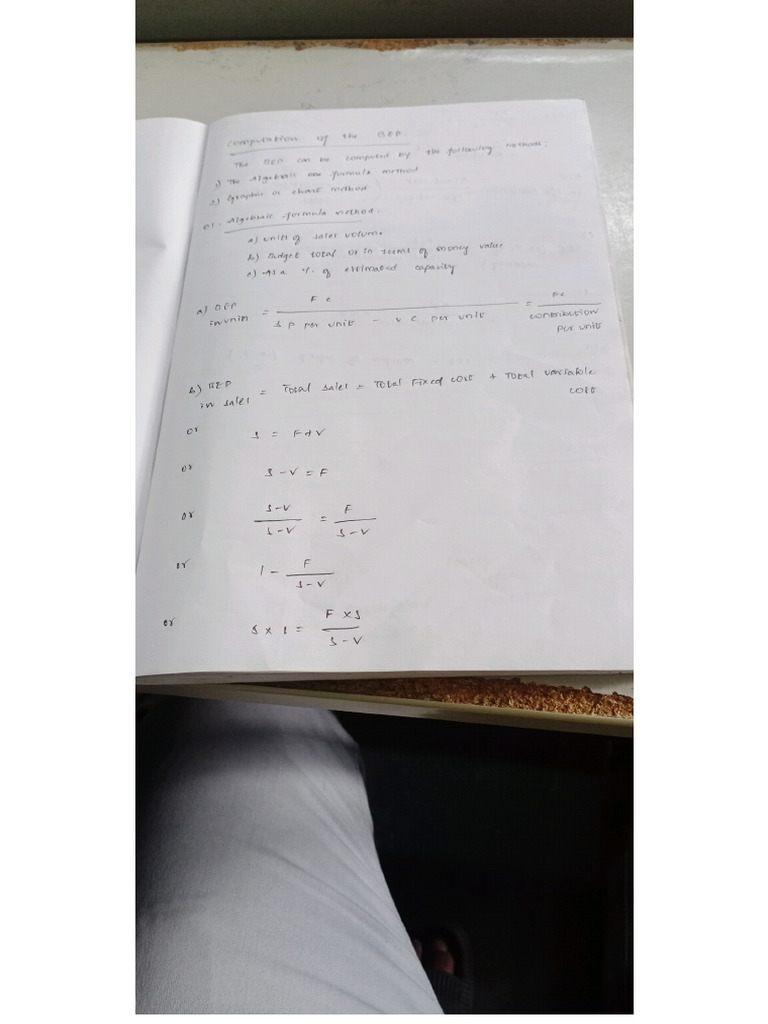 Computation of the BEP.
The BEP can be computed by the following methods:
1) The Algebraic one formula method
2) Graphic or chart method
01. Algebraic formula method.
a) units of sales volume
b) Budget total or in terms of money value
c) As a % of estimated capacity
a) BEP in units = F C / S P per unit - V C per unit = FC / contribution per unit
b) BEP in sales = Total sales = Total Fixed cost + Total variable cost
or S = F + V
or S - V = F
or S-V / S-V = F / S-V
or 1 - F / S-V
or S x 1 = F x S / S-V